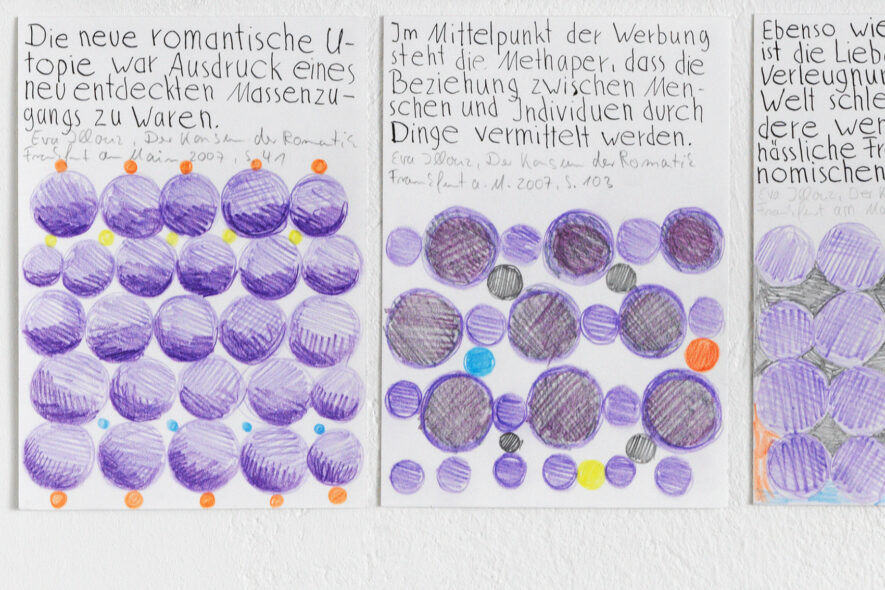 Die neue romantische U-
topie war Ausdruck eines
neu entdeckten Massenzu-
gangs zu Waren.
Eva Illouz, Der Konsum der Romantik
Frankfurt am Main 2007, S. 41
Im Mittelpunkt der Werbung
steht die Methaper, dass die
Beziehung zwischen Men-
schen und Individuen durch
Dinge vermittelt werden.
Eva Illouz, Der Konsum der Romatik
Frankfurt a. M. 2007, S. 103
Ebenso wie
ist die Lieb
Verleugnu
Welt schle
dere wer
hässliche Fr
nomischen
Eva Illouz, Der K
Frankfurt am Ma